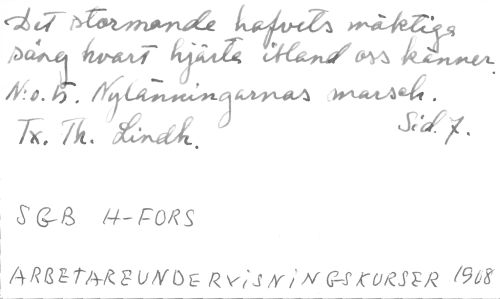 Det stormande hafvets mäktiga
sång hvart hjärta ibland oss känner.
N:o. 5. Nylänningarnas marsch.
Tx. Th. Lindh. Sid. 7.
SGB H-FORS
ARBETAREUNDERVISNINGSKURSER 1908